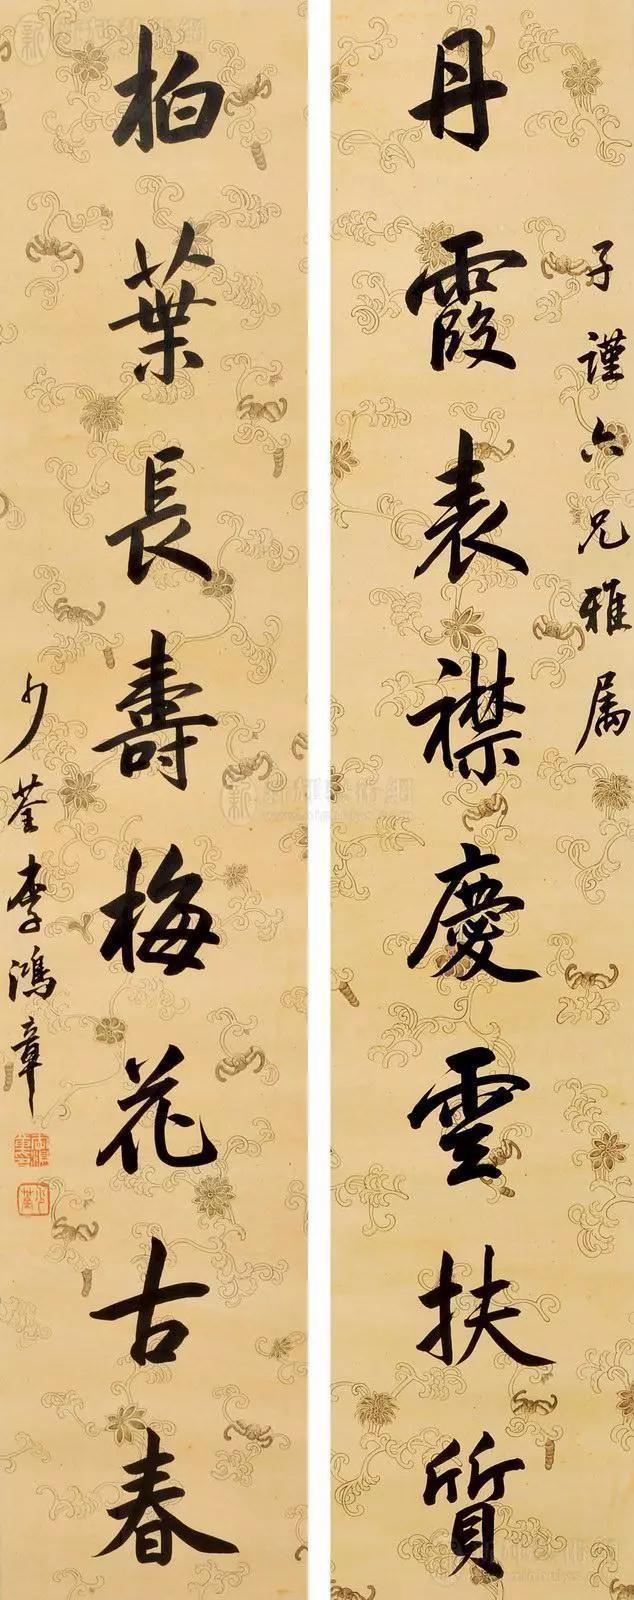 子謹六兄雅属
丹霞表襟慶雲扶質
柏葉長壽梅花古春
少荃李鴻章
少荃